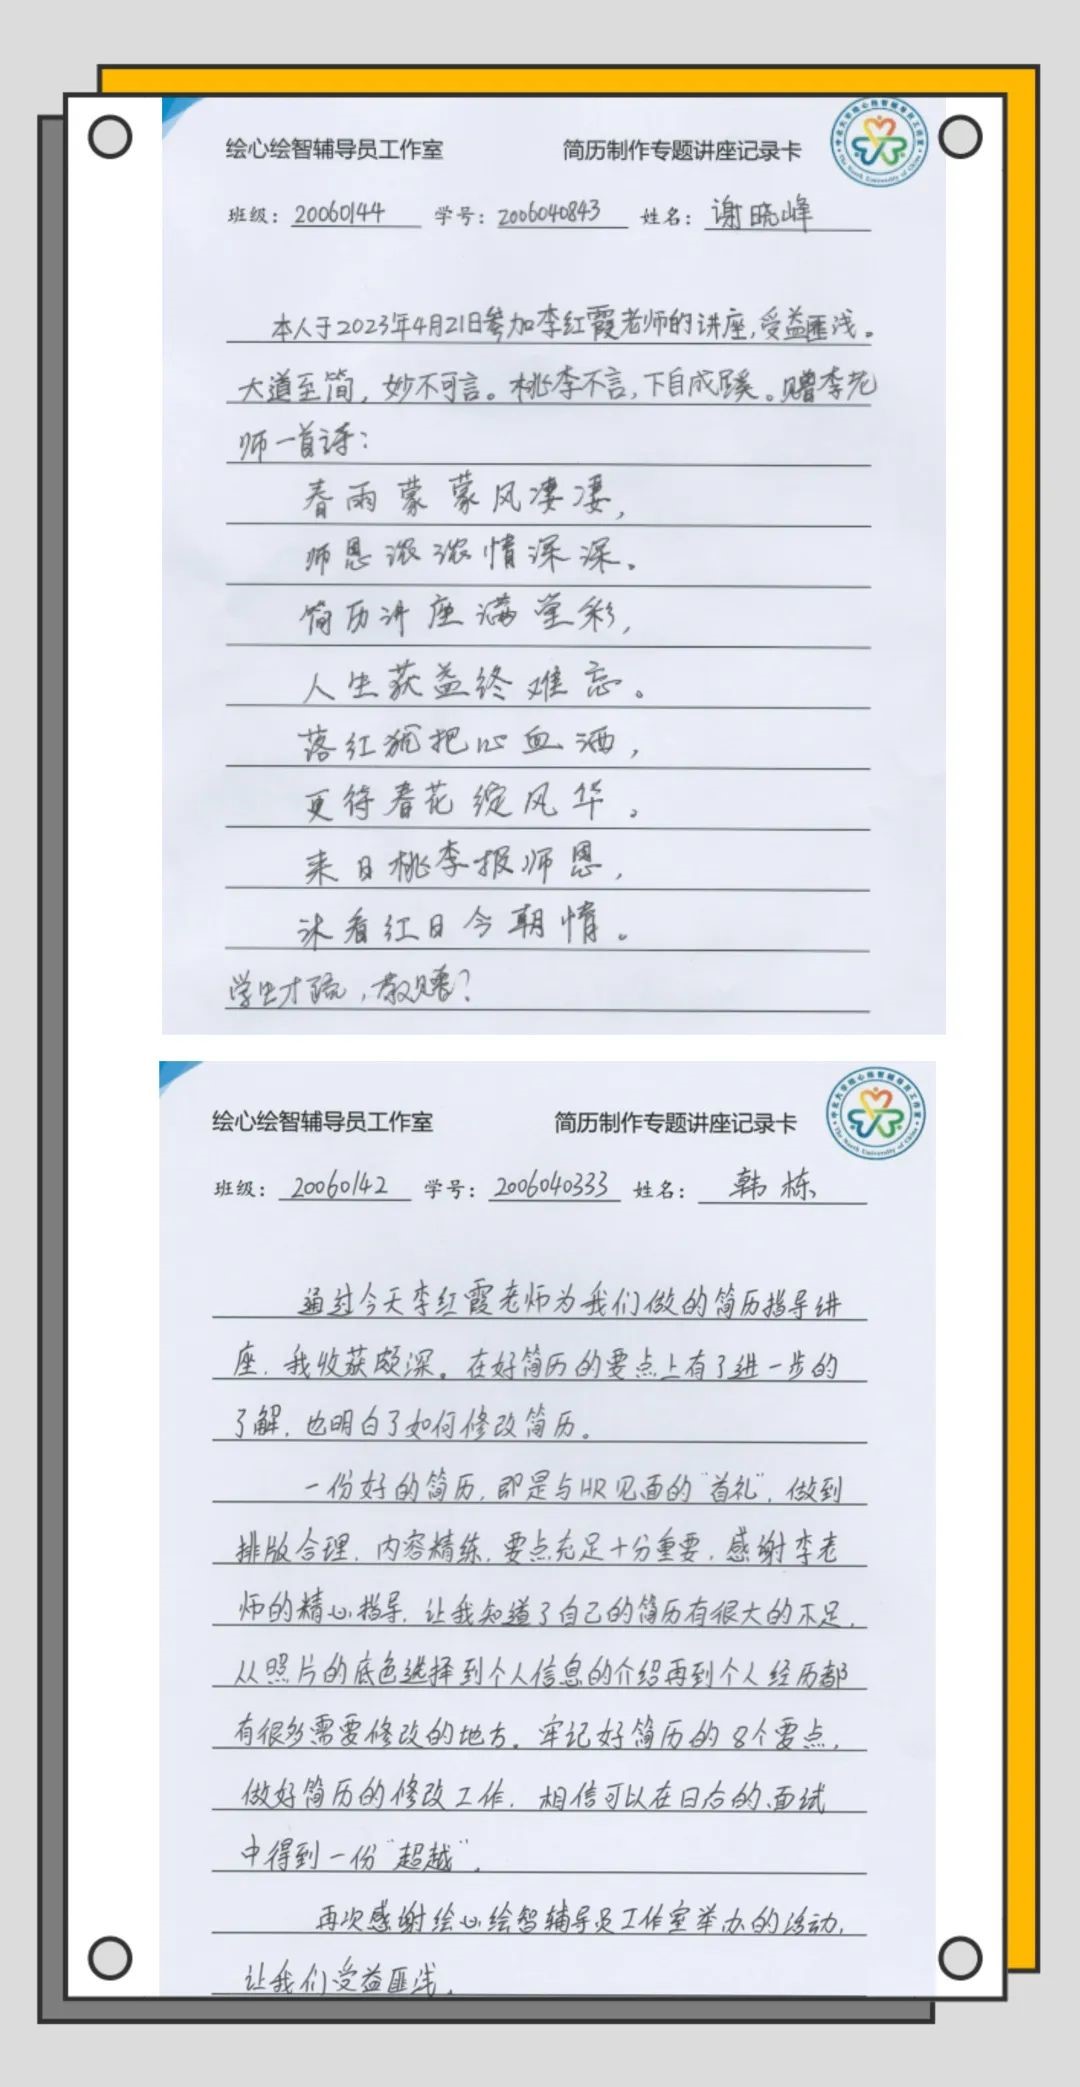 绘心绘智辅导员工作室 简历制作专题讲座记录卡
班级：20060144 学号：2006040843 姓名：谢晓峰
本人于2023年4月21日参加李红霞老师的讲座，受益匪浅。
大道至简，妙不可言。桃李不言，下自成蹊。赠李老
师一首诗：
春雨蒙蒙风凄凄，
师恩浓浓情深深。
简历讲座满堂彩，
人生获益终难忘。
落红犹把心血洒，
更待春花绽风华。
来日桃李报师恩，
沐看红日今朝情。
学生才疏，敬赠！
绘心绘智辅导员工作室 简历制作专题讲座记录卡
The North University of China
班级：20060142 学号：2006040333 姓名：韩栋
通过今天李红霞老师为我们做的简历指导讲
座，我收获颇深。在好简历的要点上有了进一步的
了解，也明白了如何修改简历。
一份好的简历，即是与HR见面的“首礼”，做到
排版合理，内容精练，要点充足十分重要，感谢李老
师的精心指导，让我知道了自己的简历有很大的不足，
从照片的底色选择到个人信息的介绍再到个人经历都
有很多需要修改的地方。牢记好简历的8个要点，
做好简历的修改工作，相信可以在日后的面试
中得到一份“超越”。
再次感谢绘心绘智辅导员工作室举办的活动，
让我们受益匪浅。